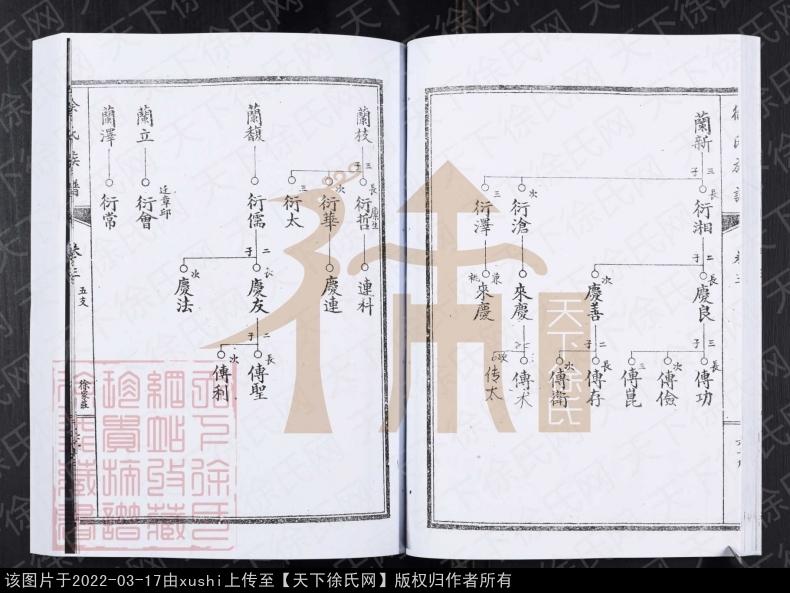 徐氏族譜
蘭新
三子
長
衍湘
次
衍滄
三
衍澤
二子
長
慶良
次
慶善
來慶
兼祧
來慶
三子
長
傳功
次
傳儉
三
傳崑
二子
長
傳存
次
傳衛
傳术
次
传太
蘭枝
三子
長
庠生
衍哲
次
衍華
三
衍太
連科
慶連
蘭馥
衍儒
二子
慶友
次
慶法
二子
長
傳聖
次
傳利
蘭立
迁章邱
衍會
蘭澤
衍常
徐氏族譜
卷三
五支
天下徐氏
天下徐氏网
该图片于2022-03-17由xushi上传至【天下徐氏网】版权归作者所有